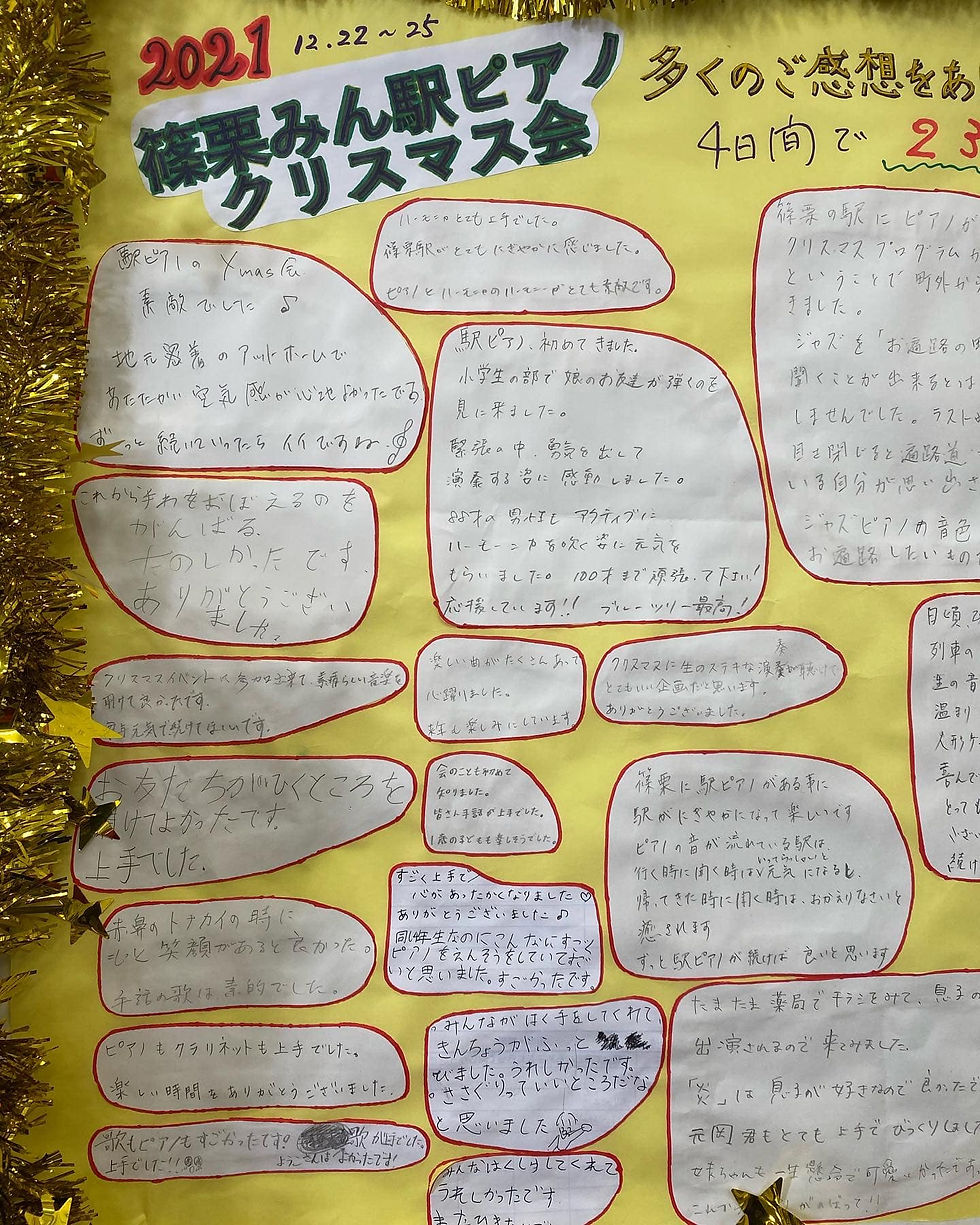 2021 12.22～25
篠栗みん駅ピアノ
クリスマス会
多くのご感想をあ
4日間で 23
駅ピアノの Xmas会
素敵でした♪
地元密着のアットホームで
あたたかい空気感が心地よかったです
ずっと続いていったらイイですね
ハーモニカとても上手でした。
篠栗駅がとてもにぎやかに感じました。
ピアノとハーモニカのハーモニーがとても素敵です。
駅ピアノ、初めてきました。
小学生の部で娘のお友達が弾くのを
見に来ました。
緊張の中、勇気を出して
演奏する姿に感動しました。
88才の男性も アクティブに
ハーモニカを吹く姿に元気を
もらいました。 100才まで頑張って下さい!
応援しています!! ブルーツリー最高!
篠栗の駅にピアノが
クリスマスプログラムが
ということで町外から
きました。
ジャズを「お遍路の
聞くことが出来るとは
しませんでした。ラストの
目を閉じると遍路道
いる自分が思い出さ
ジャズピアノの音色
お遍路したいもの
これから手わをおぼえるのを
がんばる。
たのしかったです。
ありがとうござい
ました。
クリスマスイベントに参加出来て、素晴らしい音楽を
聞けて良かったです。
毎年元気で続けてほしいです。
楽しい曲がたくさんあって
心躍りました。
来年も楽しみにしています
クリスマスに生のステキな演奏が聴けて
とてもいい企画だと思います。
ありがとうございました。
日頃
列車の
生の音
温まり
人形ケ
喜んで
とって
小さい
続け
お友だちがひくところを
聞けてよかったです。
上手でした。
会のことも初めて
知りました。
皆さん手話が上手でした。
1歳の子どもも楽しそうでした。
篠栗に駅ピアノがある事に
駅がにぎやかになって楽しいです
ピアノの音が流れている駅は、
行く時に聞く時はいってらっしゃいと元気になるし、
帰ってきた時に聞く時は、おかえりなさいと
癒されます
ずっと駅ピアノが続けば良いと思います
すごく上手で
心があったかくなりました♡
ありがとうございました♪
同じ年生なのにこんなにすごく
ピアノをえんそうをしていてすご
いと思いました。すごかったです。
赤鼻のトナカイの時に
もっと笑顔があると良かった。
手話の歌は素的でした。
みんながはく手をしてくれて
きんちょうがふっと
びました。うれしかったです。
ささぐりっていいところだな
と思いました
ピアノもクラリネットも上手でした。
楽しい時間をありがとうございました。
歌もピアノもすごかったです。 歌が上手でした。
上手でした!! ようこさんはよかったです!
みんなはくしゅしてくれて
うれしかったです。
またひきたいです
たまたま薬局でチラシをみて、息子の
出演されるので来てみました。
「炎」は息子が好きなので良かったで
元岡君もとても上手でびっくりしまし
妹ちゃんも一生懸命で可愛いかったです。